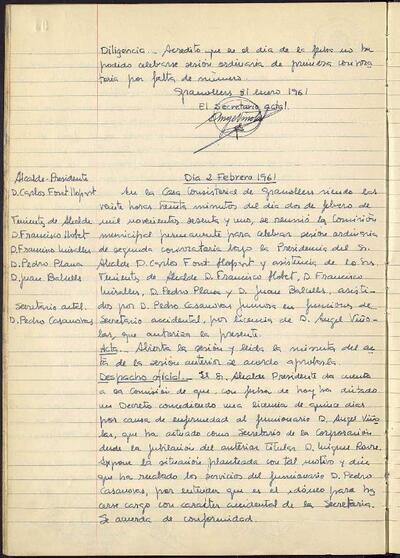 Diligencia.- Acredito que en el día de la fecha no ha
podido celebrarse sesión ordinaria de primera convoca
toria por falta de número.
Granollers 31 enero 1961
El Secretario actal.
Día 2 Febrero 1961
Alcalde-Presidente
D. Carlos Font Llopart
Teniente de Alcalde
D. Francisco Llobet
D. Francisco Mirelles
D. Pedro Plana
D. Juan Balcells
Secretario actal.
D. Pedro Casanovas
En la Casa Consistorial de Granollers siendo las
veinte horas treinta minutos del día dos de febrero de
mil novecientos sesenta y uno, se reunió la Comisión
municipal permanente para celebrar sesión ordinaria
de segunda convocatoria bajo la Presidencia del Sr.
Alcalde D. Carlos Font Llopart y asistencia de los Srs.
Tenientes de Alcalde D. Francisco Llobet, D. Francisco
Mirelles, D. Pedro Plana y D. Juan Balcells, asisti-
dos por D. Pedro Casanovas en funciones de
Secretario accidental, por licencia de D. Angel Viño-
las, que autoriza la presente.
Acta.- Abierta la sesión y leida la minuta del ac-
ta de la sesión anterior se acordó aprobarla.
Despacho oficial.- El Sr. Alcalde Presidente da cuenta
a la Comisión de que con fecha de hoy ha dictado
un Decreto concediendo una licencia de quince días
por causa de enfermedad al funcionario D. Angel Viño
las, que ha actuado como Secretario de la Corporación
desde la jubilación del anterior titular D. Miguel
Expone la situación planteada con tal motivo y dice
que ha recabado los servicios del funcionario D. Pedro
Casanovas, por entender que es el idóneo para ha
cerse cargo con carácter accidental de la Secretaría.
Se acuerda de conformidad.